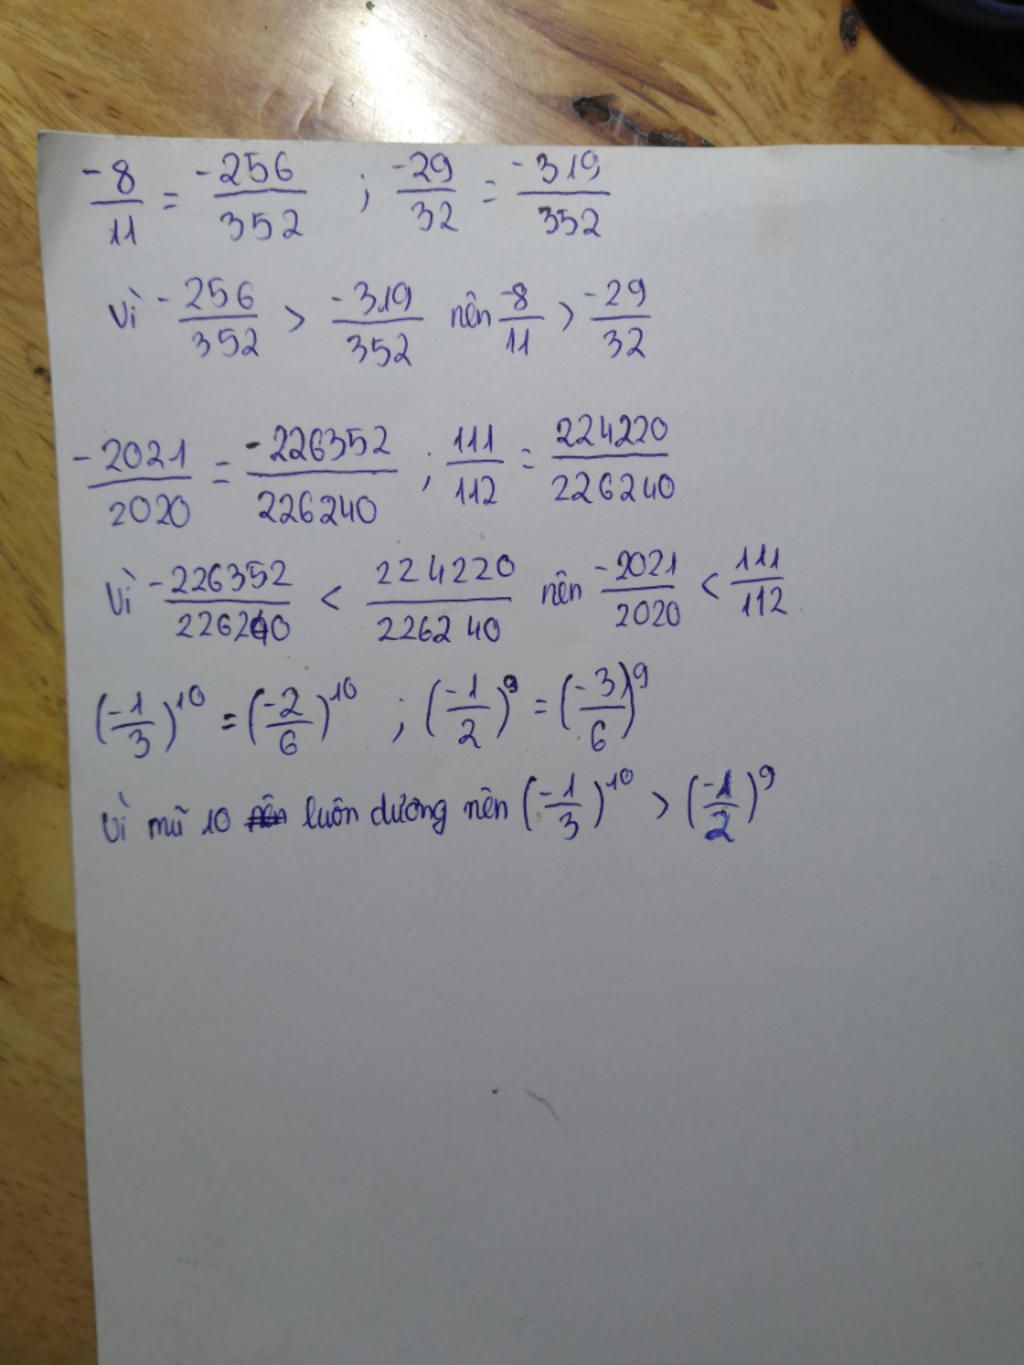 -8/11 = -256/352 ; -29/32 = -319/352
Vì -256/352 > -319/352 nên -8/11 > -29/32
-2021/2020 = -226352/226240 ; 111/112 = 224220/226240
Vì -226352/226240 < 224220/226240 nên -2021/2020 < 111/112
(-1/3)^10 = (-2/6)^10 ; (-1/2)^9 = (-3/6)^9
Vì mũ 10 luôn dương nên (-1/3)^10 > (-1/2)^9